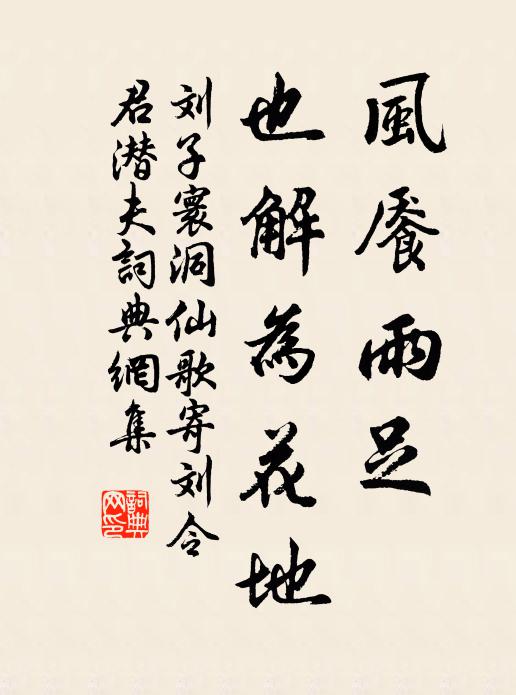 風饜雨足
也解為花地
刘子寰洞仙歌寄刘令
君潜夫詞典網集
詞典网印